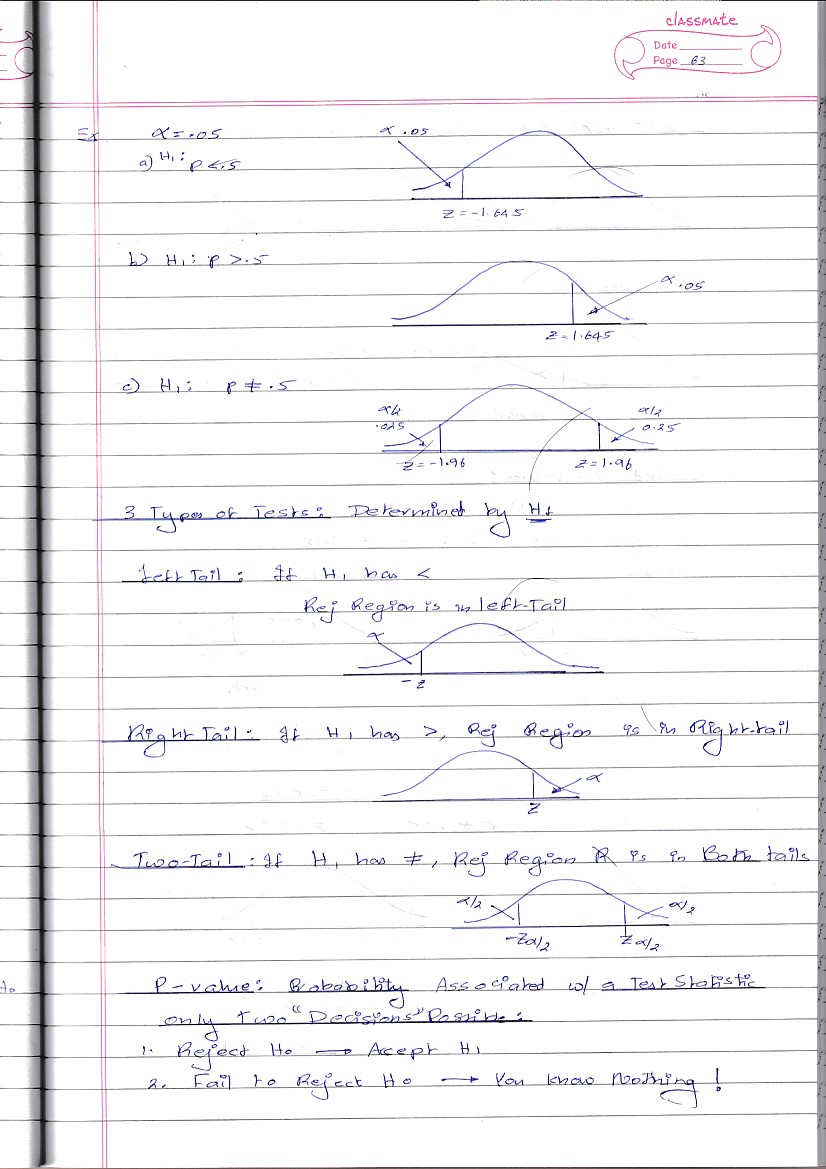 classmate
Date
Page 63
Ex α = .05
a) H1: P < .5
α .05
Z = -1.645
b) H1: P > .5
α .05
Z = 1.645
c) H1: P ≠ .5
α/2
.025
α/2
0.25
Z = -1.96
Z = 1.96
3 Types of Tests: Determined by H1
Left Tail: If H1 has <
Rej Region is in left-Tail
α
-Z
Right Tail: If H1 has >, Rej Region is in Right-tail
α
Z
Two-Tail: If H1 has ≠, Rej Region is in Both tails
α/2
α/2
-Zα/2
Zα/2
Ho
P-value: Probability Associated w/ a Test Statistic
only Two "Decisions" Possible:
1. Reject Ho → Accept H1
2. Fail to Reject Ho → You know Nothing!